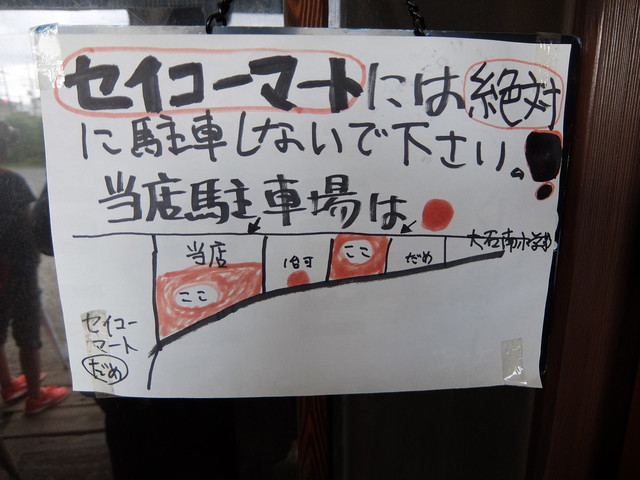 セイコーマートには絶対
に駐車しないで下さい。
当店駐車場は
当店
ここ
1台可
ここ
だめ
セイコー
マート
だめ